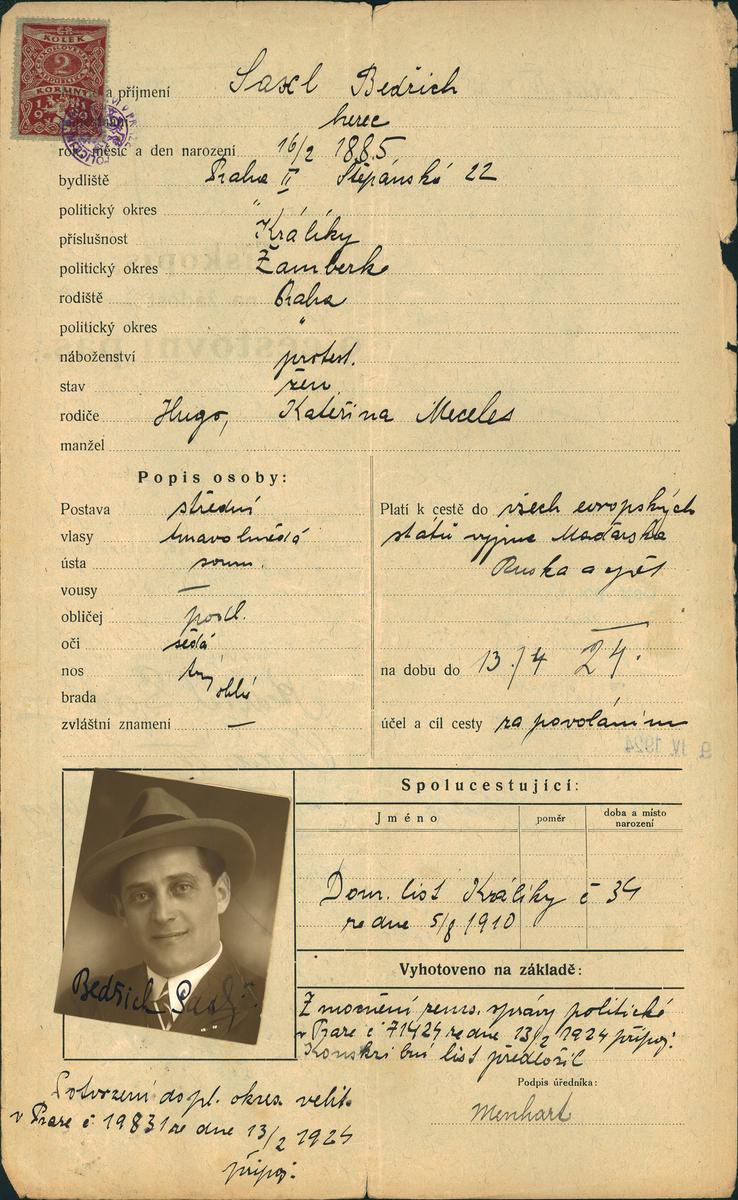 KOLEK
2
KORUNY
a příjmení Saxl Bedřich
herec
rok, měsíc a den narození 16/2 1885
bydliště Praha II Štěpánská 22
politický okres "
příslušnost Králíky
politický okres Žamberk
rodiště Praha
politický okres "
náboženství protest.
stav žen.
rodiče Hugo, Kateřina Meceles
manžel
Popis osoby:
Postava střední
vlasy tmavohnědá
ústa soum.
vousy —
obličej podl.
oči šedá
nos
brada oblá
zvláštní znamení —
Platí k cestě do všech evropských
států vyjma Maďarska
Ruska a zpět
na dobu do 13./4 24.
účel a cíl cesty za povoláním
IV 1924
Spolucestující:
Jméno poměr doba a místo narození
Dom. list Králíky č 34
ze dne 5/8 1910
Vyhotoveno na základě:
Zmocnění zems. správy politické
v Praze č 71424 ze dne 13/2 1924 připoj:
Konskribní list předložil
Podpis úředníka:
Menhart
Bedřich Saxl
Potvrzení dopl. okres. velit.
v Praze č 19831 ze dne 13/2 1924
připoj: